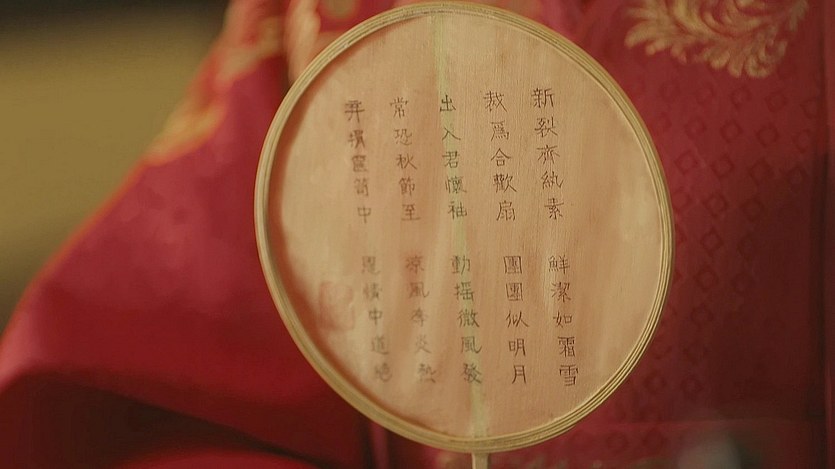 新裂齊紈素 鮮潔如霜雪
裁爲合歡扇 團團似明月
出入君懷袖 動揺微風發
常恐秋節至 涼風奪炎熱
弃捐篋笥中 恩情中道絕